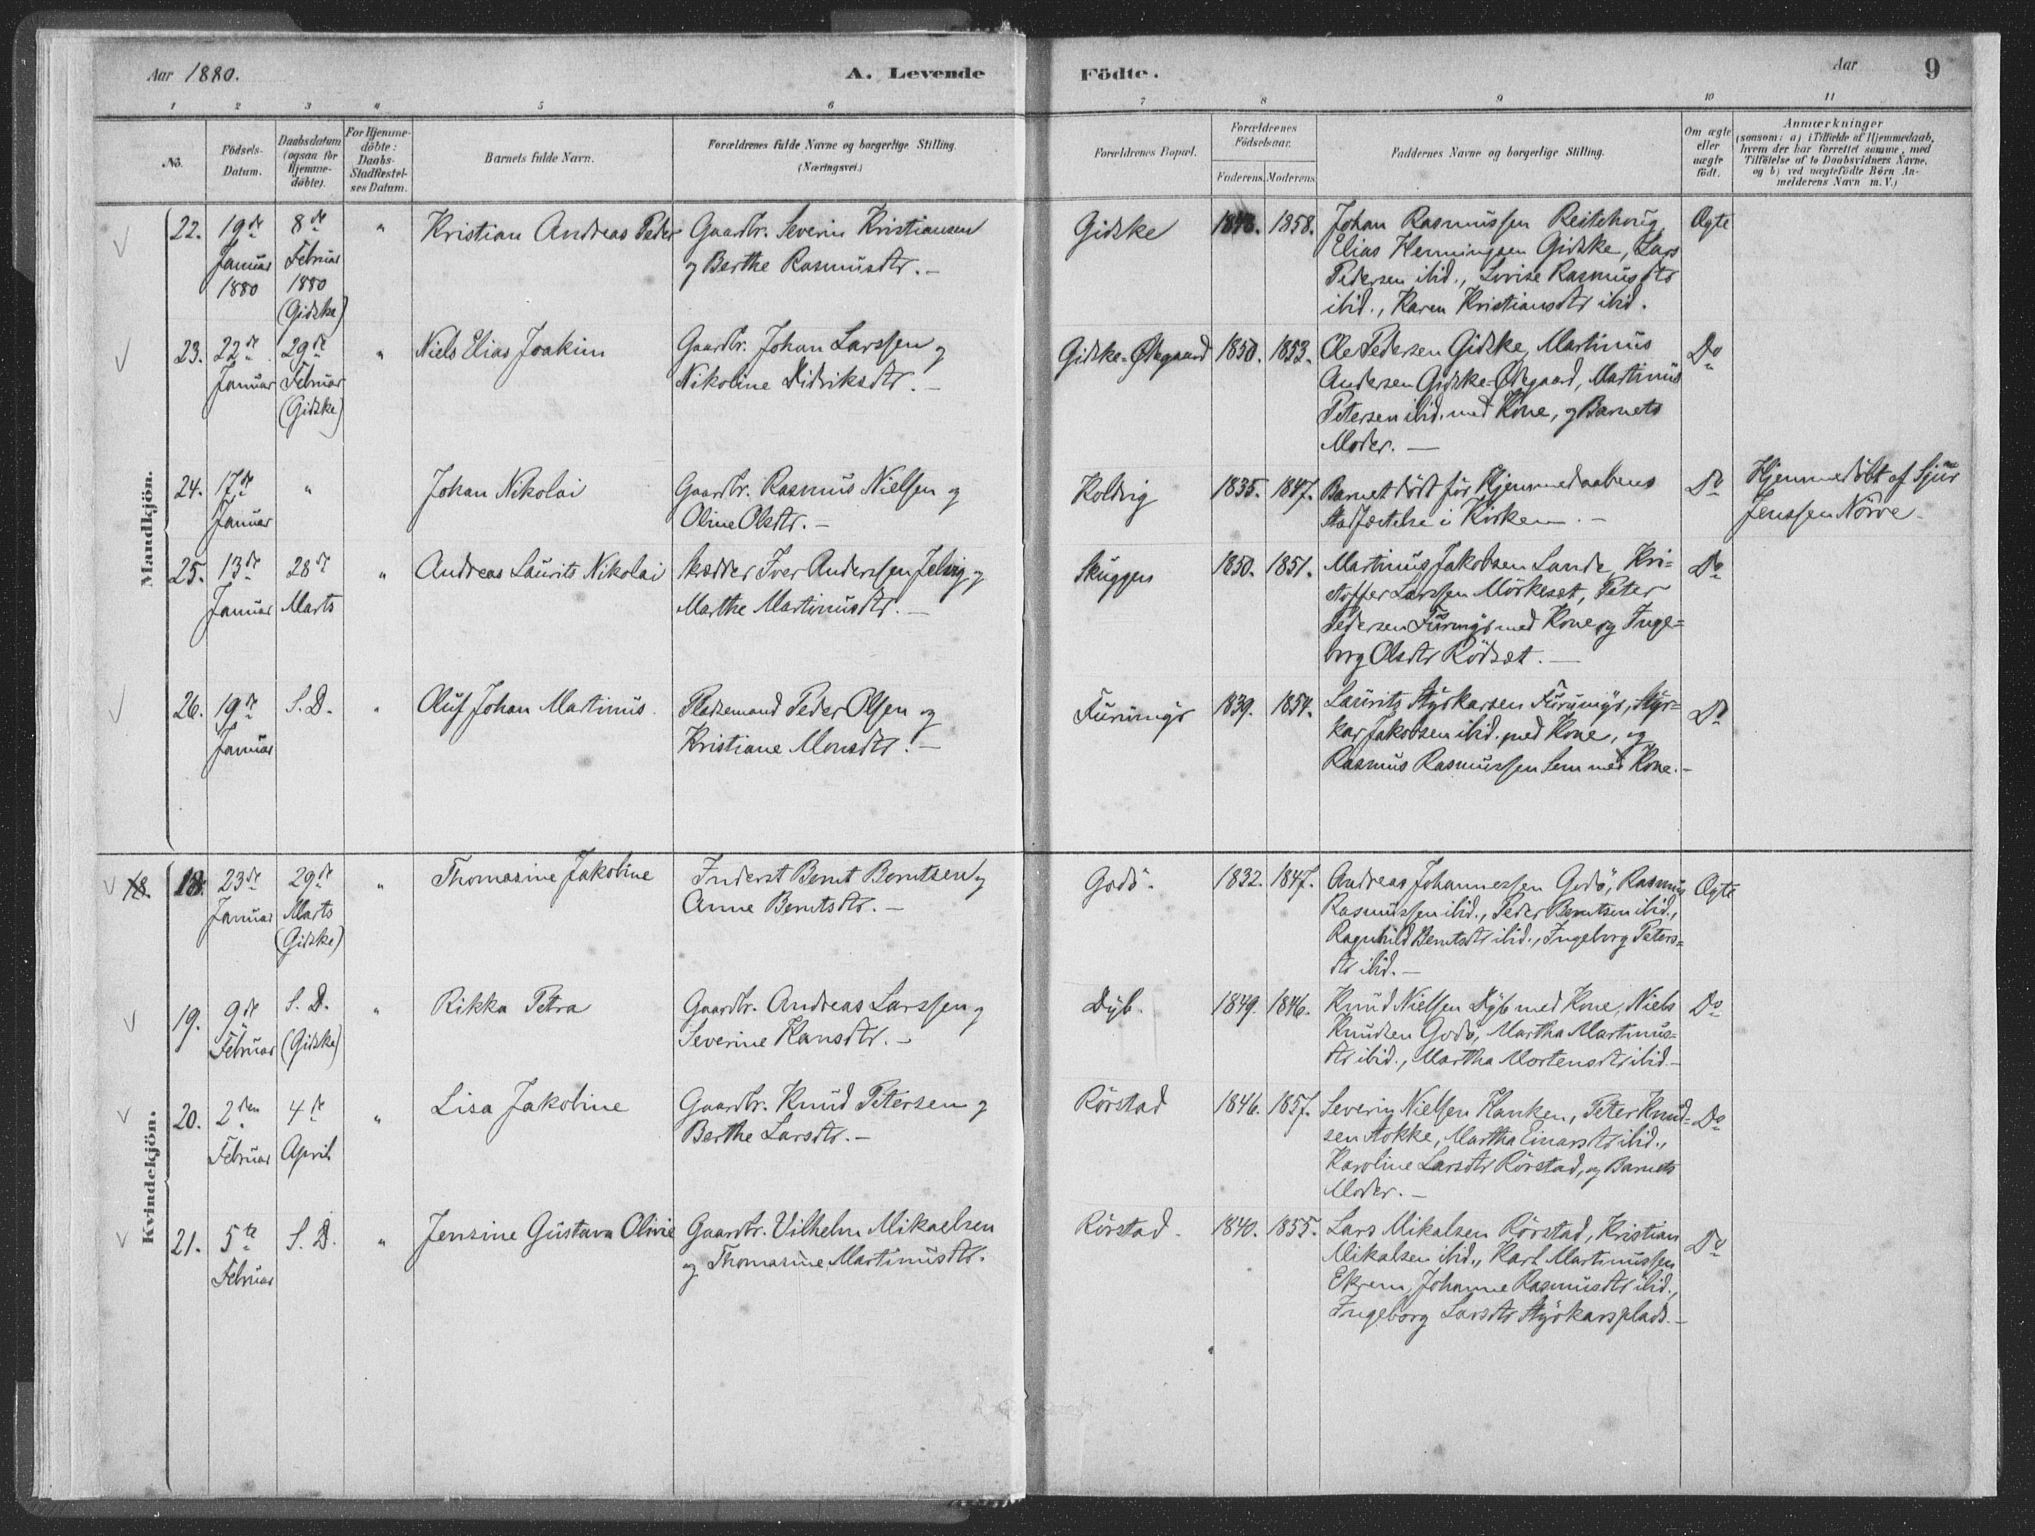 Aar 1880.
A. Levende
Födte.
Aar
9
1 2 3 4 5 6 7 8 9 10 11
No.
Födsels-
Datum.
Daabsdatum
(ogsaa for
Hjemme-
döbte).
For Hjemme-
döbte:
Daabs-
Stadfæstel-
ses Datum.
Barnets fulde Navn.
Forældrenes fulde Navne og borgerlige Stilling.
(Næringsvei.)
Forældrenes Bopæl.
Forældrenes
Födselsaar.
Faderens. Moderens.
Faddernes Navne og borgerlige Stilling.
Om ægte
eller
uægte
födt.
Anmærkninger
(saasom: a) i Tilfælde af Hjemmedaab,
hvem der har forrettet samme, med
Tilföielse af to Daabsvidners Navne,
og b) ved uægtefödte Börn An-
melderens Navn m. V.)
Mandkjön.
22.
19de
Januar
1880
8de
Februar
1880
(Gidske)
"
Kristian Andreas Peder
Gaardbr. Severin Kristiansen
og Berthe Rasmusdtr. —
Gidske
1843. 1858.
Johan Rasmussen Reitehoug,
Elias Henningsen Gidske, Lars
Pedersen ibid., Lovise Rasmusdtr
ibid., Karen Kristiansdtr ibid.
Ægte
23.
22de
Januar
29de
Februar
(Gidske)
"
Niels Elias Joakim
Gaardbr. Johan Larssen og
Nikoline Didriksdtr. —
Gidske-Ødegaard
1850. 1853.
Ole Pedersen Gidske, Martinus
Andersen Gidske-Ødegaard, Martinus
Petersen ibid. med Kone, og Barnets
Moder. —
Do
24.
17de
Januar
"
Johan Nikolai
Gaardbr. Rasmus Nielsen og
Oline Olsdtr. —
Koldvig
1835. 1847.
Barnet död för Hjemmedaabens
Stadfæstelse i Kirken. —
Do
Hjemmedöbt af Sjur
Jenssen Nörve.
25.
13de
Januar
28de
Marts
"
Andreas Laurits Nikolai
Skrædder Iver Anderssen Jelvig og
Marthe Martinusdtr. —
Skuggen
1850. 1851.
Martinus Jakobsen Lande, Kri-
stoffer Larssen Mörkeset, Peter
Pedersen Furmyr med Kone og Inge-
borg Olsdtr Rödset. —
Do
26.
19de
Januar
S. D.
"
Oluf Johan Martinus.
Pladsemand Peder Olsen og
Kristiane Monsdtr. —
Furumyr
1839. 1854.
Laurits Styrkarsen Furumyr, Styr-
kar Jakobsen ibid. med Kone, og
Rasmus Rasmussen Sem med Kone. —
Do
Kvindekjön.
18. 18.
23de
Januar
29de
Marts
(Gidske)
"
Thomasine Jakobine
Inderst Bernt Berntsen og
Anne Berntsdtr. —
Godö.
1832. 1847.
Andreas Johannessen Godö, Rasmus
Rasmussen ibid., Peder Berntsen ibid.,
Ragnhild Berntsdtr ibid., Ingeborg Peters-
dtr ibid. —
Ægte
19.
9de
Februar
S. D.
(Gidske)
"
Rikka Petra
Gaardbr. Andreas Larssen og
Severine Hansdtr. —
Dyb.
1849. 1846.
Knud Nielsen Dyb med Kone, Niels
Knudsen Godö, Martha Martinus-
dtr ibid., Martha Mortensdtr ibid —
Do
20.
2den
Februar
4de
April
"
Lisa Jakobine
Gaardbr. Knud Petersen og
Berthe Larsdtr. —
Rörstad
1846. 1857.
Severin Nielsen Flanken, Peter Knud-
sen Stokke, Martha Einarsdtr ibid.,
Karoline Larsdtr Rörstad, og Barnets
Moder. —
Do
21.
5te
Februar
S. D.
"
Jensine Gustava Olivie
Gaardbr. Vilhelm Mikaelsen
og Thomasine Martinusdtr.
Rörstad.
1840. 1855.
Lars Mikalsen Rörstad, Kristian
Mikalsen ibid., Karl Martinussen
Ekrem, Johanne Rasmusdtr ibid.,
Ingeborg Larsdtr Styrkarsplads. —
Do